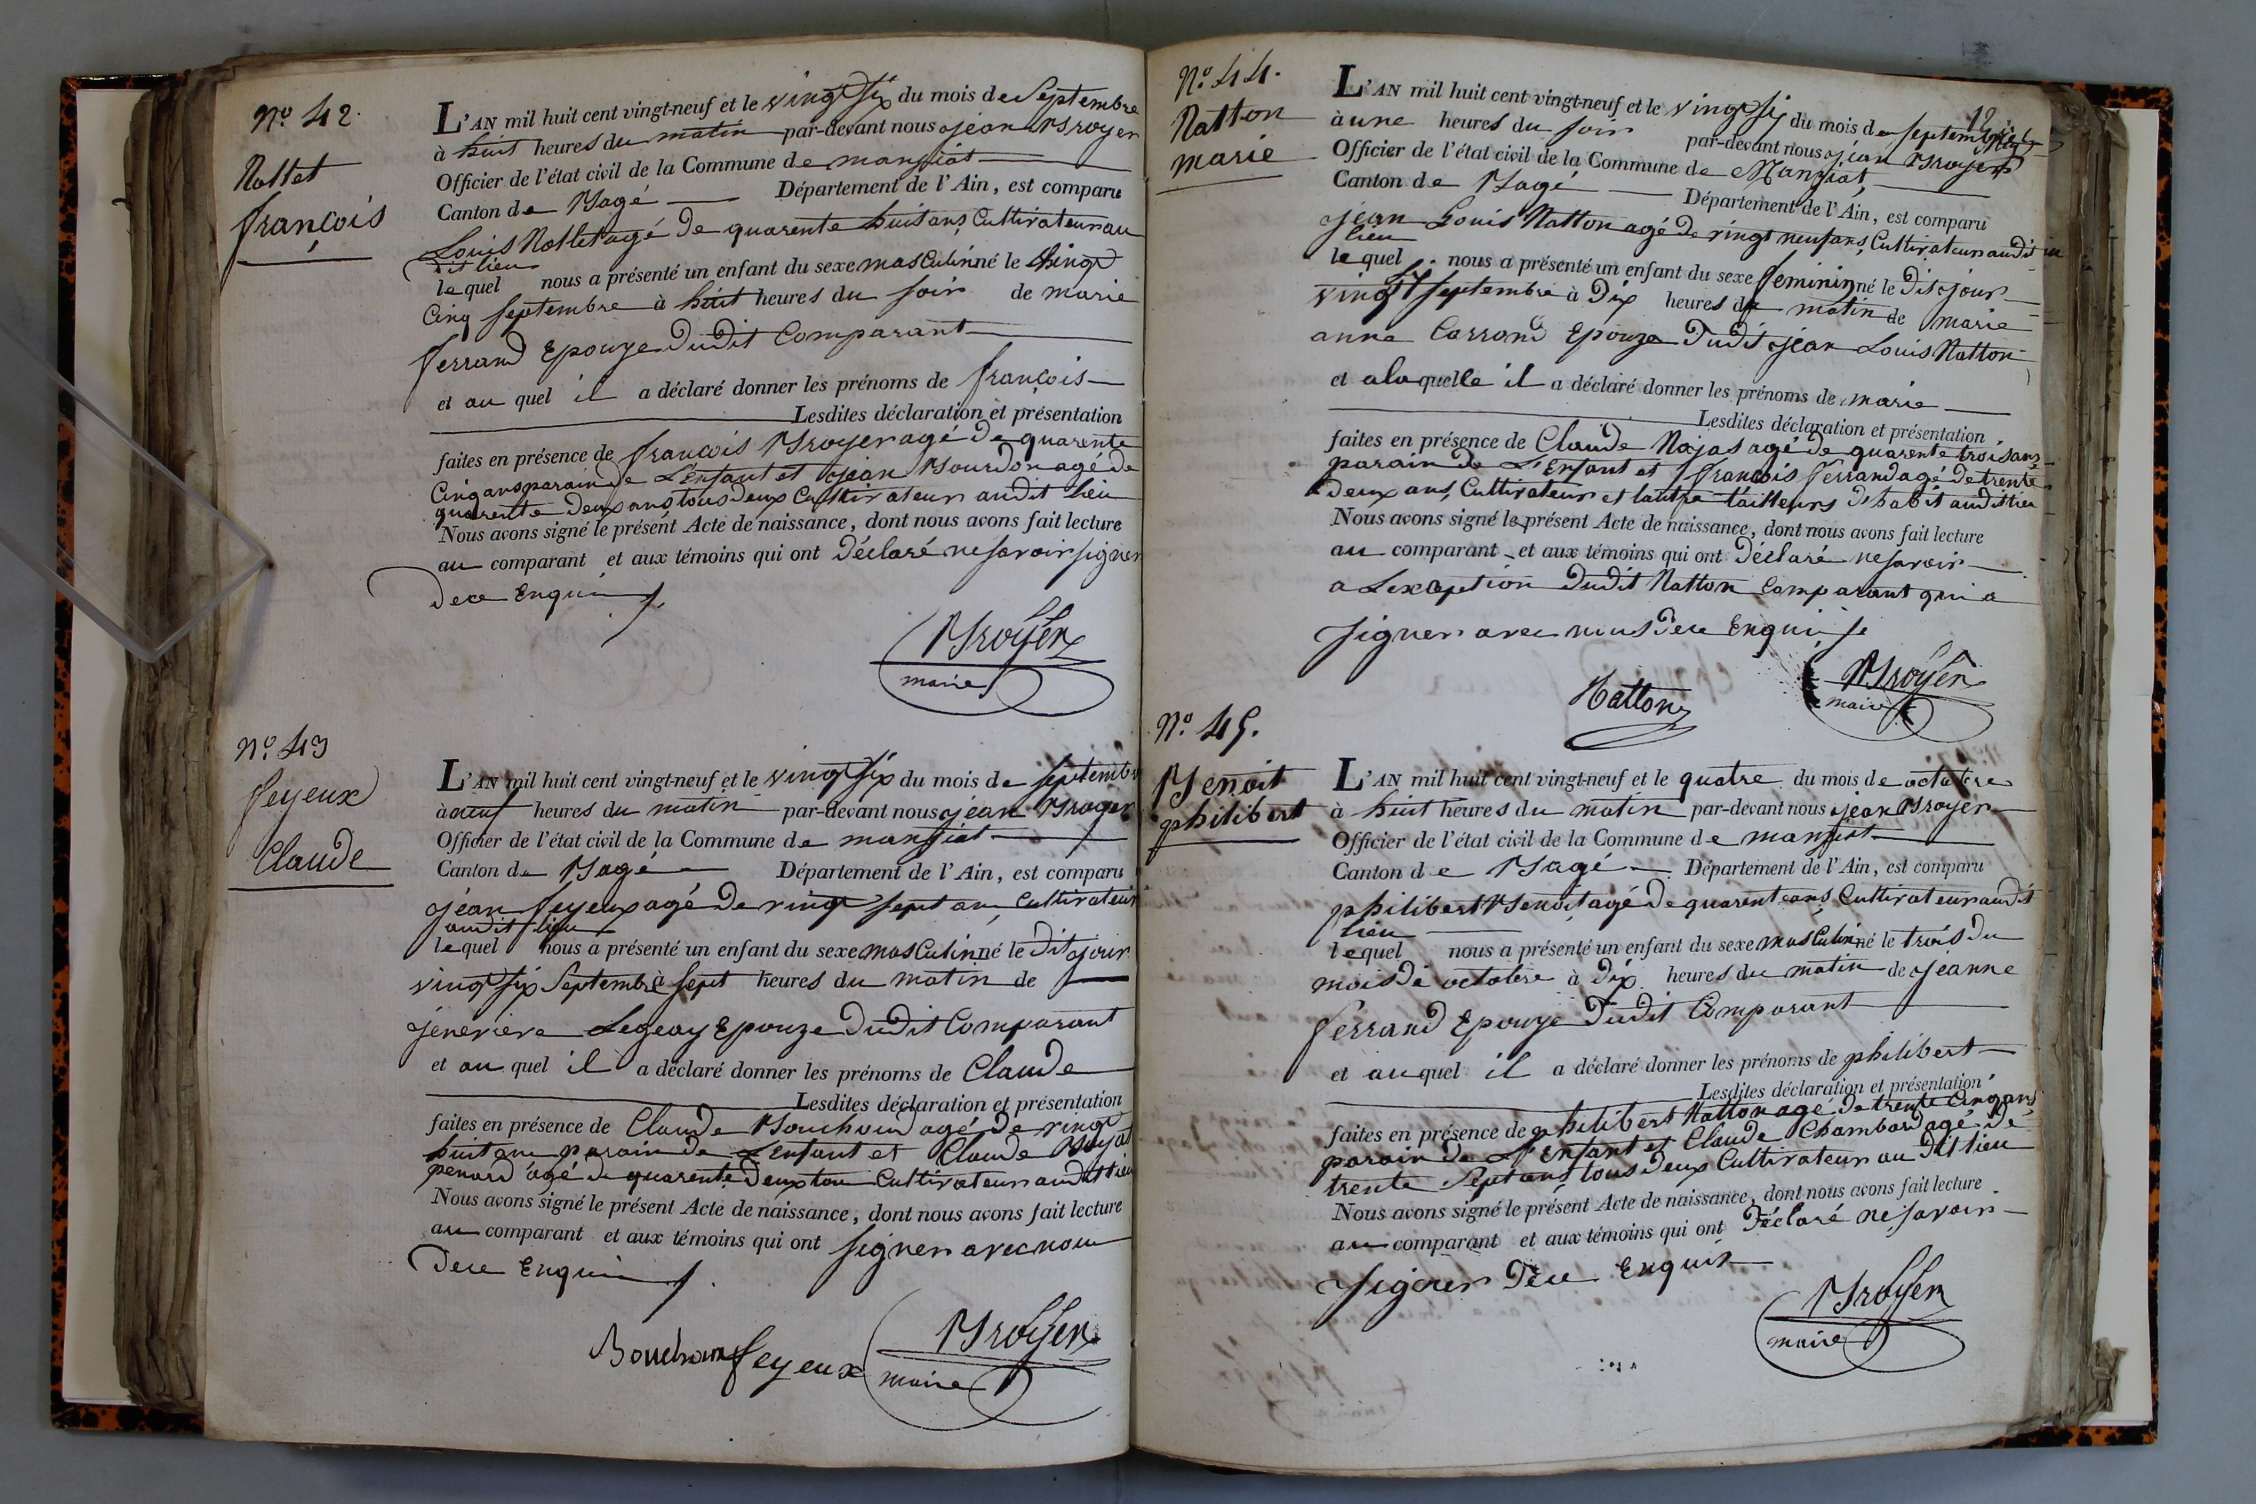 N.º 42.
Nallet
françois
L'AN mil huit cent vingt-neuf et le vingt six du mois de Septembre
à huit heures du matin par-devant nous jean Broyer
Officier de l'état civil de la Commune de manziat
Canton de Bagé Département de l'Ain, est comparu
Louis Nallet agé de quarente huit ans, Cultivateur au
dit lieu
lequel nous a présenté un enfant du sexe masculin né le vingt
cinq septembre à huit heures du soir de marie
ferrand Epouze dudit Comparant
et au quel il a déclaré donner les prénoms de françois
Lesdites déclaration et présentation
faites en présence de françois Broyer agé de quarente
Cinq ans parain de L'enfant et jean Bourdon agé de
quarente deux ans tous deux Cultivateur audit lieu
Nous avons signé le présent Acte de naissance, dont nous avons fait lecture
au comparant et aux témoins qui ont déclaré ne savoir signer
de ce Enqui
Broyer
maire
N.º 43
feyeux
Claude
L'AN mil huit cent vingt-neuf et le vingt six du mois de septembre
à neuf heures du matin par-devant nous jean Broyer
Officier de l'état civil de la Commune de manziat
Canton de Bagé Département de l'Ain, est comparu
jean feyeux agé de vingt sept an Cultivateur
audit lieu
lequel nous a présenté un enfant du sexe masculin né le dit jour
vingt six Septembre à sept heures du matin de
jenevieve Legeay Epouze dudit Comparant
et au quel il a déclaré donner les prénoms de Claude
Lesdites déclaration et présentation
faites en présence de Claude Bouchoud agé de vingt
huit an parain de L'enfant et Claude Boyat
penard agé de quarente deux tou Cultivateur audit lieu
Nous avons signé le présent Acte de naissance, dont nous avons fait lecture
au comparant et aux témoins qui ont signer avec nou
de ce Enqui
feyeux
Broyer
maire
N.º 44.
Natton
marie
L'AN mil huit cent vingt-neuf et le vingt six du mois de septembre
à une heures du soir par-devant nous jean Broyer
Officier de l'état civil de la Commune de Manziat
Canton de Bagé Département de l'Ain, est comparu
jean Louis Natton agé de vingt neuf ans, Cultivateur audit
lieu
lequel nous a présenté un enfant du sexe feminin né le dit jour
vingt six septembre à dix heures du matin de marie
anne Carrand Epouze dudit jean Louis Natton
et a la quelle il a déclaré donner les prénoms de marie
Lesdites déclaration et présentation
faites en présence de Claude Najas agé de quarente trois ans
parain de L'Enfant et françois ferrand agé de trente
deux ans, Cultivateur et lautre tailleurs d habit audit lieu
Nous avons signé le présent Acte de naissance, dont nous avons fait lecture
au comparant et aux témoins qui ont déclaré ne savoir
a L'exception dudit Natton Comparant qui a
signer avec nous de ce Enqui
Natton
Broyer
maire
N.º 45.
Benoit
philibert
L'AN mil huit cent vingt-neuf et le quatre du mois de octobre
à huit heures du matin par-devant nous jean Broyer
Officier de l'état civil de la Commune de manziat
Canton de Bagé Département de l'Ain, est comparu
philibert Benoit agé de quarent ans, Cultivateur audit
lieu
lequel nous a présenté un enfant du sexe masculin né le trois du
mois de octobre à dix heures du matin de jeanne
ferrand Epouze dudit Comparant
et auquel il a déclaré donner les prénoms de philibert
Lesdites déclaration et présentation
faites en présence de philibert Natton agé de trente cinq ans
parain de L'Enfant et Claude Chambard agé de
trente Sept ans tous deux Cultivateur au dit lieu
Nous avons signé le présent Acte de naissance, dont nous avons fait lecture
au comparant et aux témoins qui ont déclaré ne savoir
signer de ce Enquis
Broyer
maire